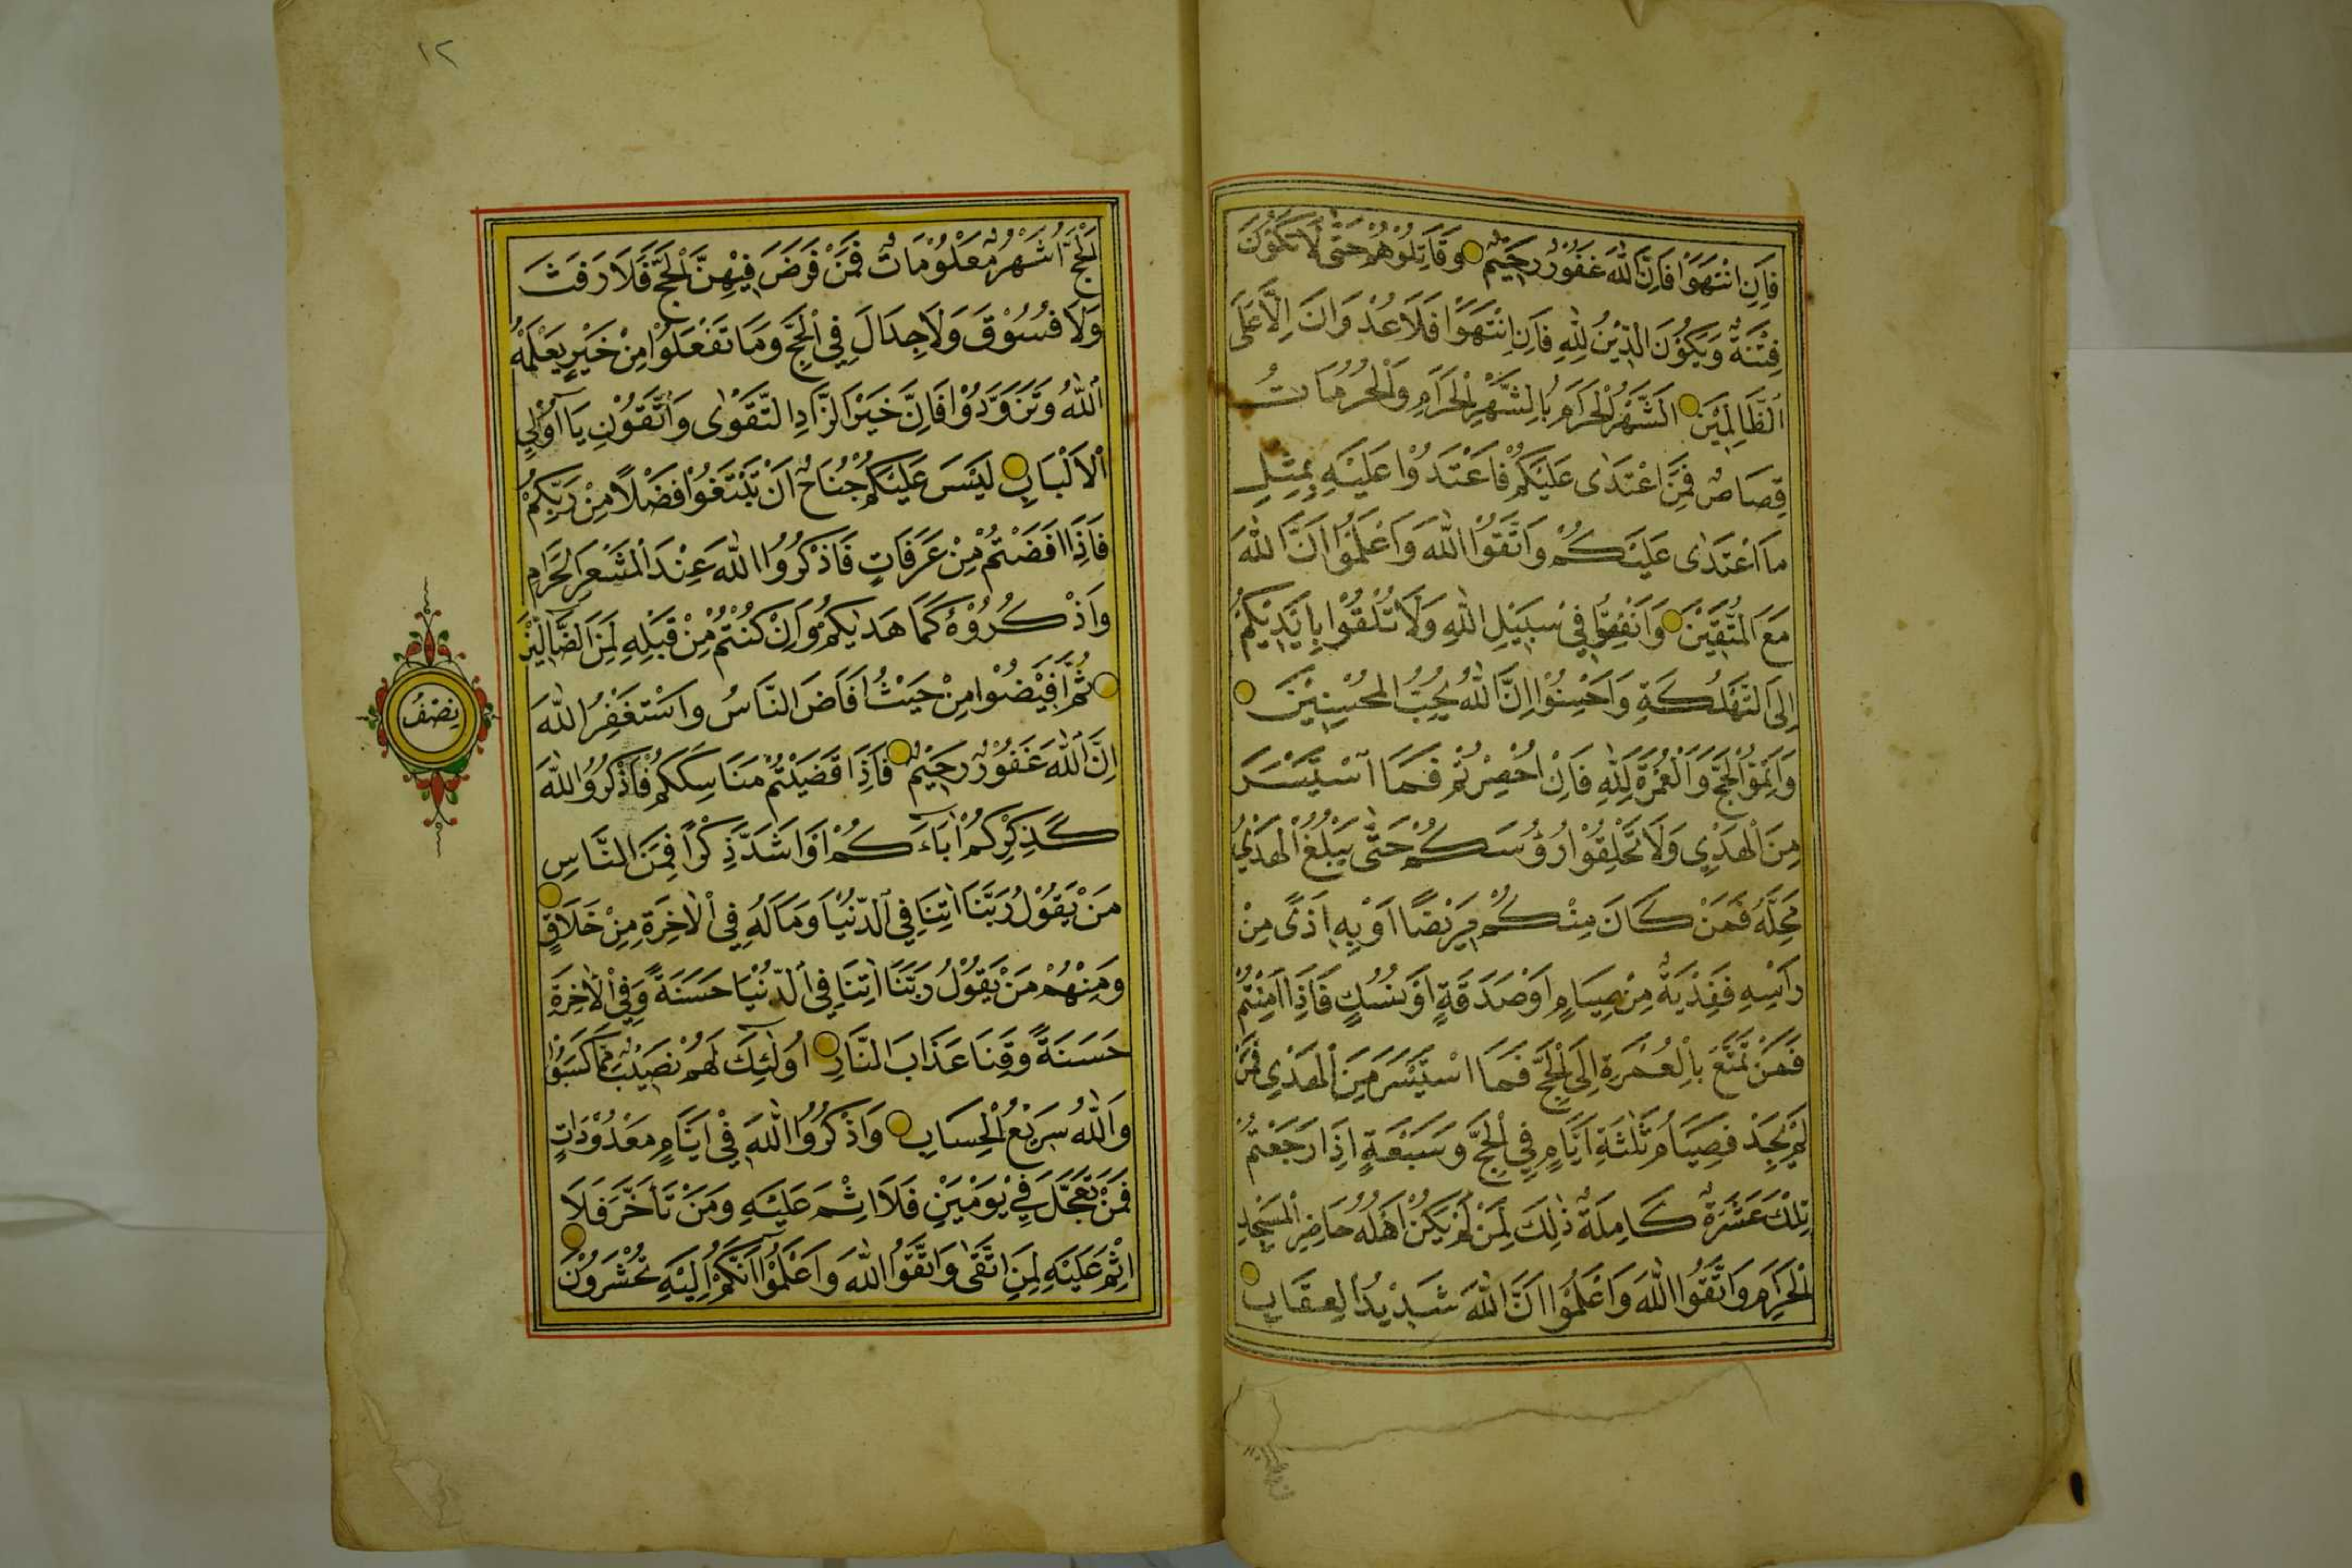 فَاِنِ انْتَهَوْا فَاِنَّ اللّٰهَ غَفُوْرٌ رَحِيْمٌ وَقَاتِلُوْهُمْ حَتّٰى لَا تَكُوْنَ
فِتْنَةٌ وَيَكُوْنَ الدِّيْنُ لِلّٰهِ فَاِنِ انْتَهَوْا فَلَا عُدْوَانَ اِلَّا عَلَى
الظَّالِمِيْنَ اَلشَّهْرُ الْحَرَامُ بِالشَّهْرِ الْحَرَامِ وَالْحُرُمَاتُ
قِصَاصٌ فَمَنِ اعْتَدٰى عَلَيْكُمْ فَاعْتَدُوْا عَلَيْهِ بِمِثْلِ
مَا اعْتَدٰى عَلَيْكُمْ وَاتَّقُوا اللّٰهَ وَاعْلَمُوْا اَنَّ اللّٰهَ
مَعَ الْمُتَّقِيْنَ وَاَنْفِقُوْا فِيْ سَبِيْلِ اللّٰهِ وَلَا تُلْقُوْا بِاَيْدِيْكُمْ
اِلَى التَّهْلُكَةِ وَاَحْسِنُوْا اِنَّ اللّٰهَ يُحِبُّ الْمُحْسِنِيْنَ
وَاَتِمُّوا الْحَجَّ وَالْعُمْرَةَ لِلّٰهِ فَاِنْ اُحْصِرْتُمْ فَمَا اسْتَيْسَرَ
مِنَ الْهَدْيِ وَلَا تَحْلِقُوْا رُؤُسَكُمْ حَتّٰى يَبْلُغَ الْهَدْيُ
مَحِلَّهُ فَمَنْ كَانَ مِنْكُمْ مَرِيْضًا اَوْ بِهِ اَذًى مِنْ
رَاْسِهِ فَفِدْيَةٌ مِنْ صِيَامٍ اَوْ صَدَقَةٍ اَوْ نُسُكٍ فَاِذَا اَمِنْتُمْ
فَمَنْ تَمَتَّعَ بِالْعُمْرَةِ اِلَى الْحَجِّ فَمَا اسْتَيْسَرَ مِنَ الْهَدْيِ فَمَنْ
لَمْ يَجِدْ فَصِيَامُ ثَلٰثَةِ اَيَّامٍ فِي الْحَجِّ وَسَبْعَةٍ اِذَا رَجَعْتُمْ
تِلْكَ عَشَرَةٌ كَامِلَةٌ ذٰلِكَ لِمَنْ لَمْ يَكُنْ اَهْلُهُ حَاضِرِي الْمَسْجِدِ
الْحَرَامِ وَاتَّقُوا اللّٰهَ وَاعْلَمُوْا اَنَّ اللّٰهَ شَدِيْدُ الْعِقَابِ
١٢
اَلْحَجُّ اَشْهُرٌ مَعْلُوْمَاتٌ فَمَنْ فَرَضَ فِيْهِنَّ الْحَجَّ فَلَا رَفَثَ
وَلَا فُسُوْقَ وَلَا جِدَالَ فِي الْحَجِّ وَمَا تَفْعَلُوْا مِنْ خَيْرٍ يَعْلَمْهُ
اللّٰهُ وَتَزَوَّدُوْا فَاِنَّ خَيْرَ الزَّادِ التَّقْوٰى وَاتَّقُوْنِ يَا اُولِي
الْاَلْبَابِ لَيْسَ عَلَيْكُمْ جُنَاحٌ اَنْ تَبْتَغُوْا فَضْلًا مِنْ رَبِّكُمْ
فَاِذَا اَفَضْتُمْ مِنْ عَرَفَاتٍ فَاذْكُرُوا اللّٰهَ عِنْدَ الْمَشْعَرِ الْحَرَامِ
وَاذْكُرُوْهُ كَمَا هَدٰيكُمْ وَاِنْ كُنْتُمْ مِنْ قَبْلِهِ لَمِنَ الضَّالِّيْنَ
ثُمَّ اَفِيْضُوْا مِنْ حَيْثُ اَفَاضَ النَّاسُ وَاسْتَغْفِرُوا اللّٰهَ
اِنَّ اللّٰهَ غَفُوْرٌ رَحِيْمٌ فَاِذَا قَضَيْتُمْ مَنَاسِكَكُمْ فَاذْكُرُوا اللّٰهَ
كَذِكْرِكُمْ اٰبَاءَكُمْ اَوْ اَشَدَّ ذِكْرًا فَمِنَ النَّاسِ
مَنْ يَقُوْلُ رَبَّنَا اٰتِنَا فِي الدُّنْيَا وَمَا لَهُ فِي الْاٰخِرَةِ مِنْ خَلَاقٍ
وَمِنْهُمْ مَنْ يَقُوْلُ رَبَّنَا اٰتِنَا فِي الدُّنْيَا حَسَنَةً وَفِي الْاٰخِرَةِ
حَسَنَةً وَقِنَا عَذَابَ النَّارِ اُولٰئِكَ لَهُمْ نَصِيْبٌ مِمَّا كَسَبُوْا
وَاللّٰهُ سَرِيْعُ الْحِسَابِ وَاذْكُرُوا اللّٰهَ فِيْ اَيَّامٍ مَعْدُوْدَاتٍ
فَمَنْ تَعَجَّلَ فِيْ يَوْمَيْنِ فَلَا اِثْمَ عَلَيْهِ وَمَنْ تَاَخَّرَ فَلَا
اِثْمَ عَلَيْهِ لِمَنِ اتَّقٰى وَاتَّقُوا اللّٰهَ وَاعْلَمُوْا اَنَّكُمْ اِلَيْهِ تُحْشَرُوْنَ
نِصْفُ